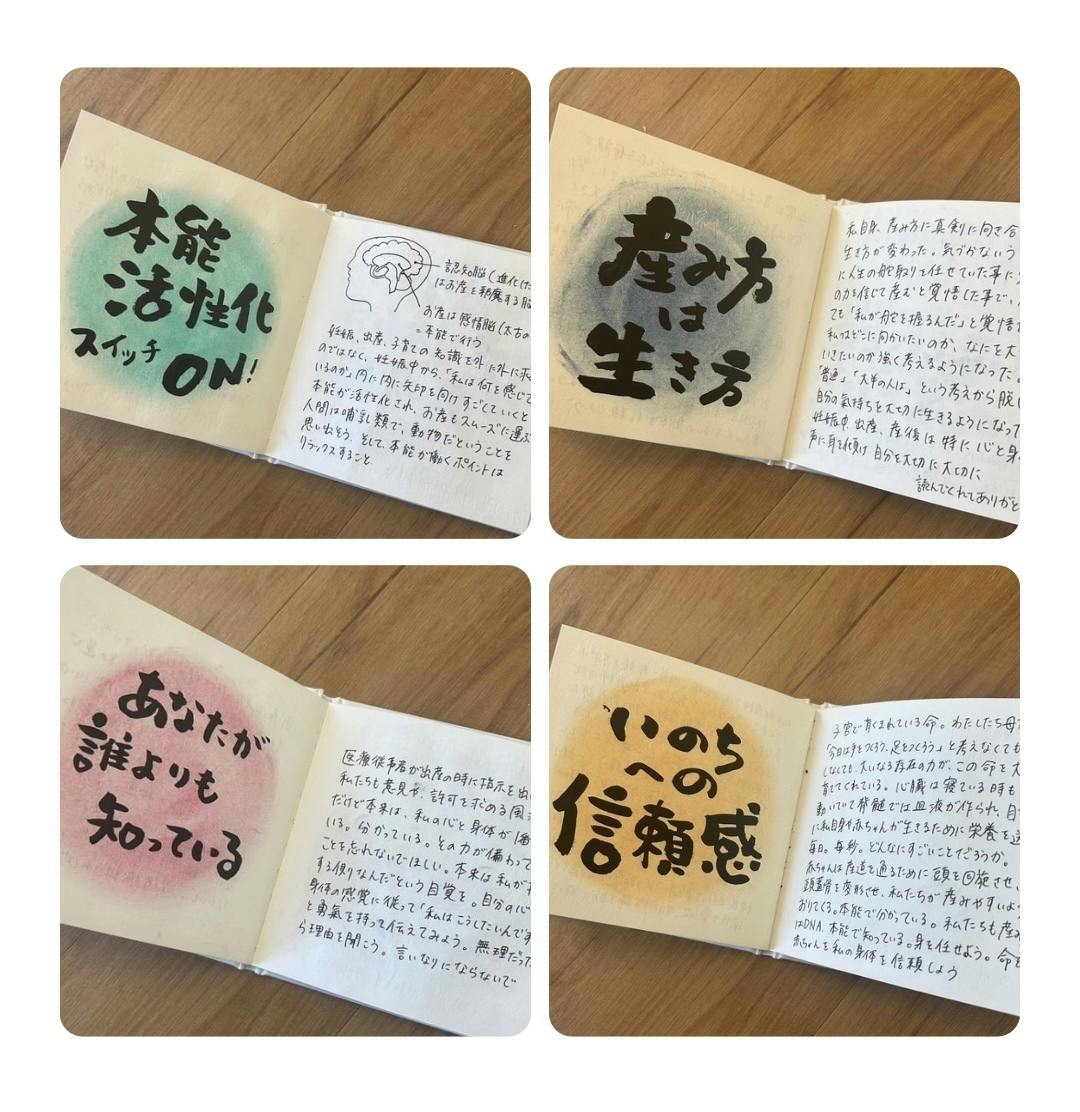 本能
活性化
スイッチ
ON!
認知脳(進化した
はお産を邪魔する脳
お産は感情脳(太古の
=本能で行う
妊娠、出産、子育ての知識を外に外に求
のではなく、妊娠中から、「私は何を感じて
いるのか」内に内に矢印を向けすごしていくと
本能が活性化され、お産もスムーズに運ぶ
人間は哺乳類で、動物だということを
思い出そう。そして、本能が働くポイントは
リラックスすること。
産み方
は
生き方
私自身、産み方に真剣に向き合
生き方が変わった。気づかないう
に人生の舵取りを任せていた事に
の力を信じて産むと覚悟した事で、
ても「私が舵を握るんだ」と覚悟
私はどこに向かいたいのか、なにを大
いきたいのか強く考えるようになった。
「普通」「大半の人は」という考えから脱
自分の気持ちを大切に生きるようになっ
妊娠中、出産、産後は特に心と身
声に耳を傾け自分を大切に大切に
読んでくれてありがと
あなたが
誰よりも
知っている
医療従事者が出産の時に指示を出
私たちも意見や、許可を求める風
だけど本来は、私の心と身体が1番
いる。分かっている。その力が備わって
ことを忘れないでほしい。本来は私が
する側りなんだという自覚を。自分の心
身体の感覚に従って「私はこうしたいんです
と勇氣を持って伝えてみよう。無理だった
ら理由を聞こう。言いなりにならないで
いのち
への
信頼感
子宮で育くまれている命。わたしたち母
「今日は手をつくろう、足をつくろう」と考えなくても
しなくても、大いなる存在の力が、この命を大
育てくれている。心臓は寝ている時も
動いていて脊髄では血液が作られ、
に私自身や赤ちゃんが生きるために栄養を送
毎日。毎秒。どんなにすごいことだろうか。
赤ちゃんは産道を通るために頭を回旋させ、
頭蓋骨を変形させ、私たちが産みやすいよう
おりてくる。本能で分かっている。私たちも産み
はDNA、本能で知っている。身を任せよう。命を
赤ちゃんを私の身体を信頼しよう